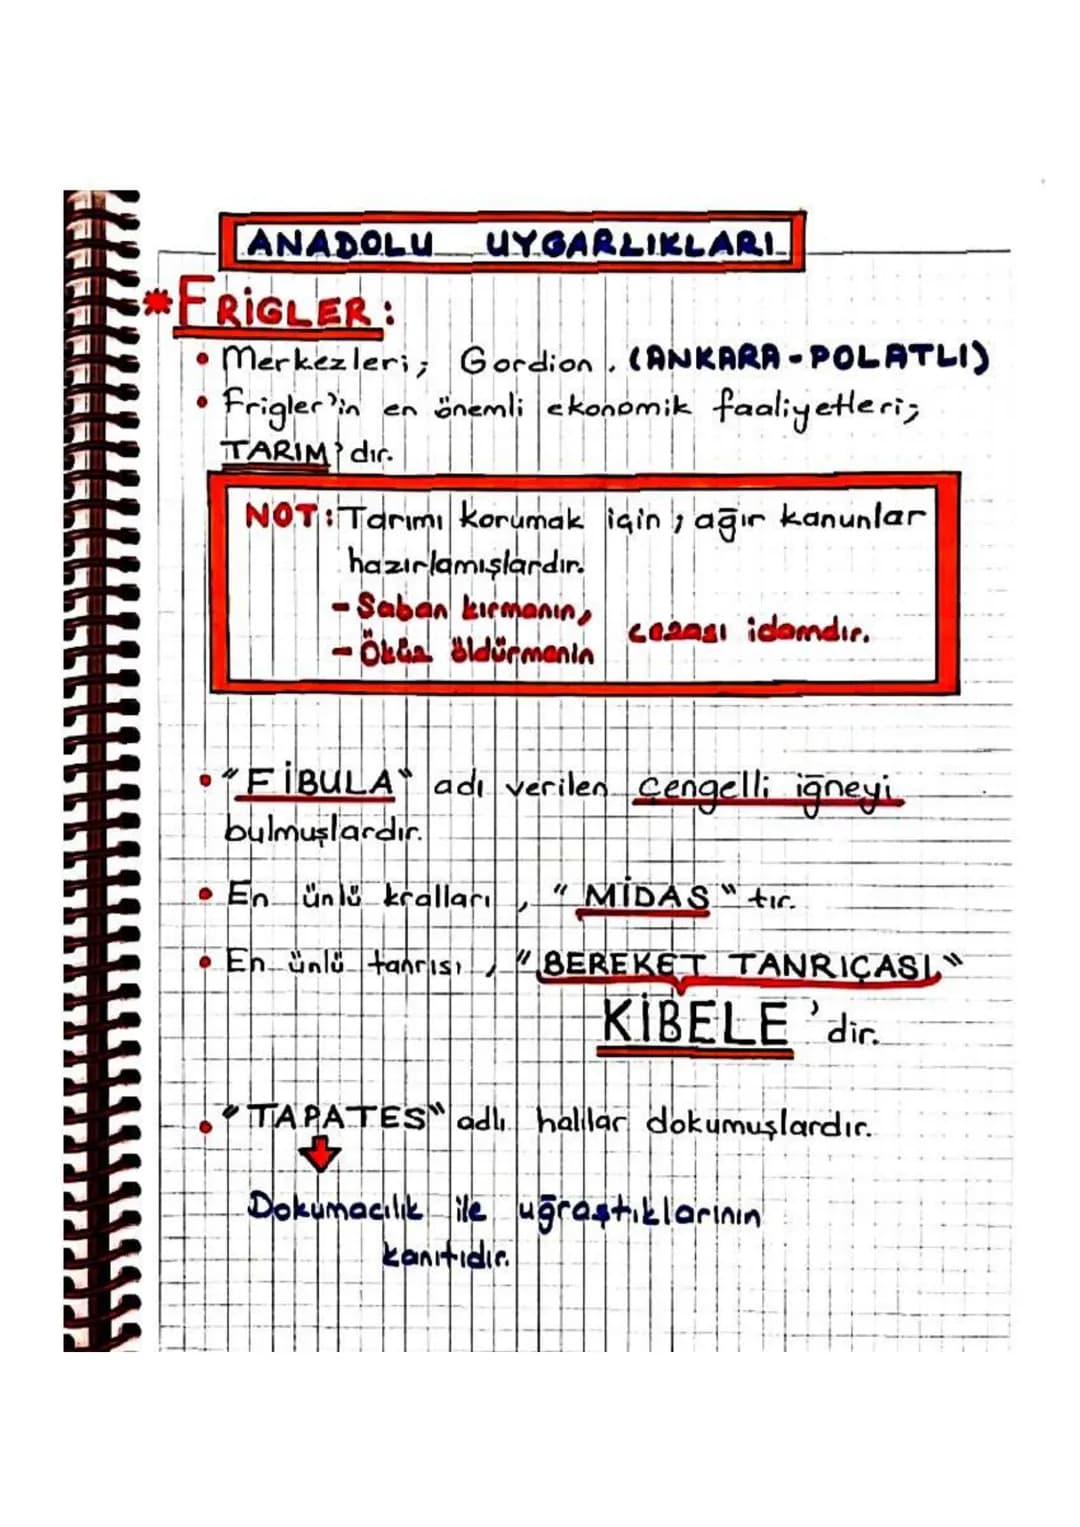 ANADOLU UYGARLIKLARI
* FRİGLER:
• Merkezleri; Gordion. (ANKARA-POLATLI)
• Frigler'in en önemli ekonomik faaliyetleri;
TARIM'dır.
NOT: Tarımı korumak için; ağır kanunlar
hazırlamışlardır.
- Saban kırmanın,
- Öküz öldürmenin cezası idamdır.
• "FİBULA" adı verilen çengelli iğneyi
bulmuşlardır.
• En ünlü kralları, "MİDAS" tır.
• En ünlü tanrısı, "BEREKET TANRIÇASI"
KİBELE'dir.
• "TAPATES" adlı halılar dokumuşlardır.
Dokumacılık ile uğraştıklarının
kanıtıdır.